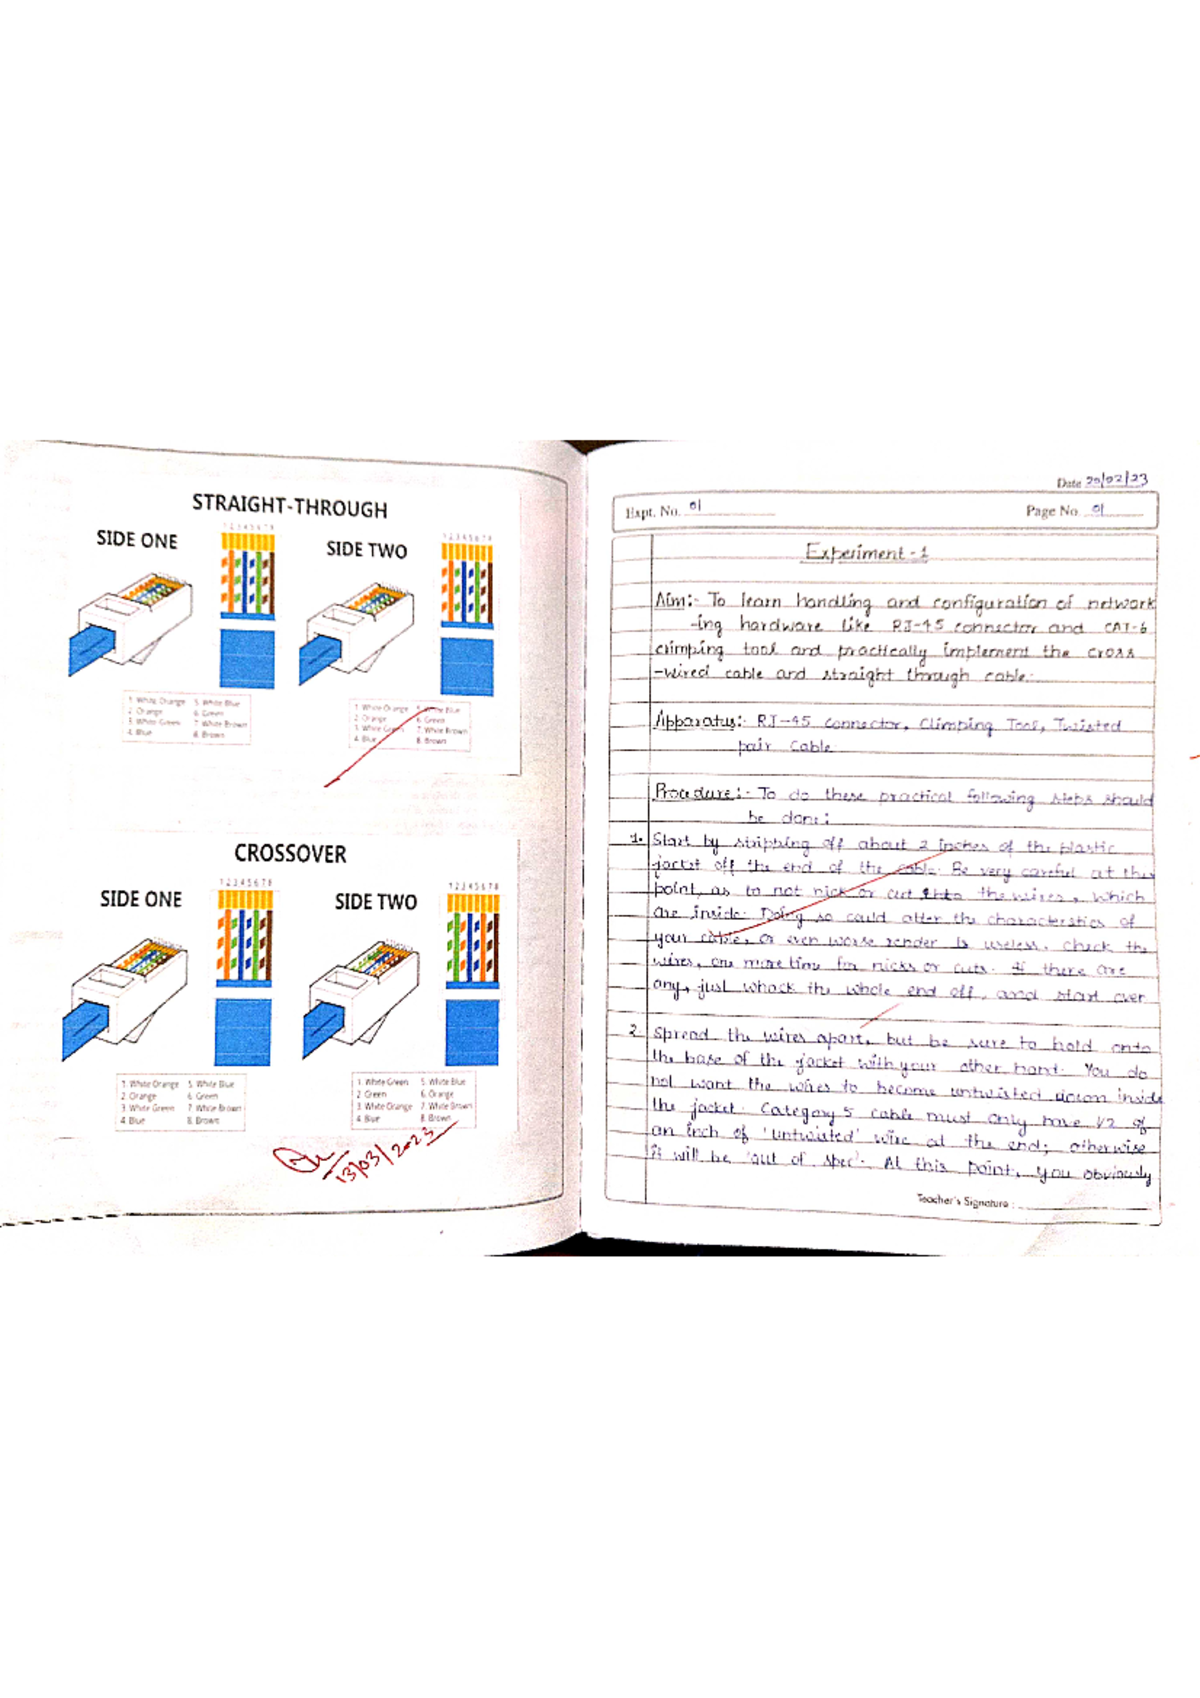 STRAIGHT-THROUGH
SIDE ONE
1 2 3 4 5 6 7 8
SIDE TWO
1 2 3 4 5 6 7 8
1. White Orange 5. White Blue
2. Orange 6. Green
3. White Green 7. White Brown
4. Blue 8. Brown
1. White Orange 5. White Blue
2. Orange 6. Green
3. White Green 7. White Brown
4. Blue 8. Brown
CROSSOVER
SIDE ONE
1 2 3 4 5 6 7 8
SIDE TWO
1 2 3 4 5 6 7 8
1. White Orange 5. White Blue
2. Orange 6. Green
3. White Green 7. White Brown
4. Blue 8. Brown
1. White Green 5. White Blue
2. Green 6. Orange
3. White Orange 7. White Brown
4. Blue 8. Brown
13/03/2023
Date 20/02/23
Expt. No. 01
Page No. 01
Experiment - 1
Aim:- To learn handling and configuration of network
-ing hardware like RJ-45 connector and CAT-6
crimping tool and practically implement the cross
-wired cable and straight through cable.
Apparatus:- RJ-45 connector, Climping Tool, Twisted
pair Cable
Procedure:- To do these practical following steps should
be done:
1. Start by stripping off about 2 inches of the plastic
jacket off the end of the cable. Be very careful at this
point, as to not nick or cut into the wires, which
are inside. Doing so could alter the characterstics of
your cable, or even worse render is useless. Check the
wires, one more time for nicks or cuts. If there are
any, just whack the whole end off, and start over
2. Spread the wires apart, but be sure to hold onto
the base of the jacket with your other hand. You do
not want the wires to become untwisted down inside
the jacket. Category 5 cable must only have 1/2 of
an inch of 'untwisted' wire at the end; otherwise
it will be 'out of spec'. At this point, you obviously
Teacher's Signature :